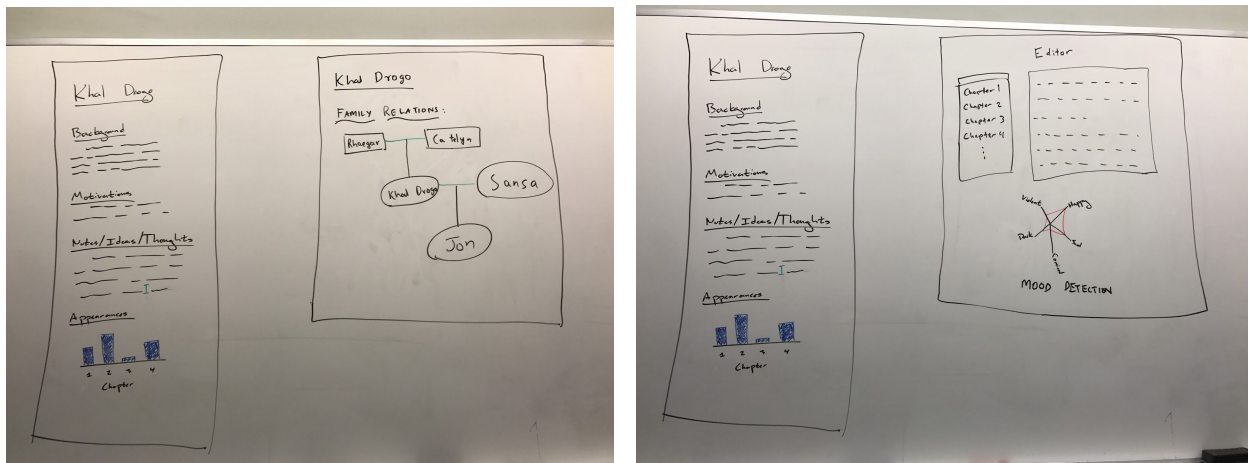 Khal Drogo
Background
Motivations
Notes/Ideas/Thoughts
Appearances
1 2 3 4
Chapter
Khal Drogo
FAMILY RELATIONS:
Rhaegar
Catelyn
Khal Drogo
Sansa
Jon
Khal Drogo
Background
Motivations
Notes/Ideas/Thoughts
Appearances
1 2 3 4
Chapter
Editor
Chapter 1
Chapter 2
Chapter 3
Chapter 4
Happy
Dark
MOOD DETECTION